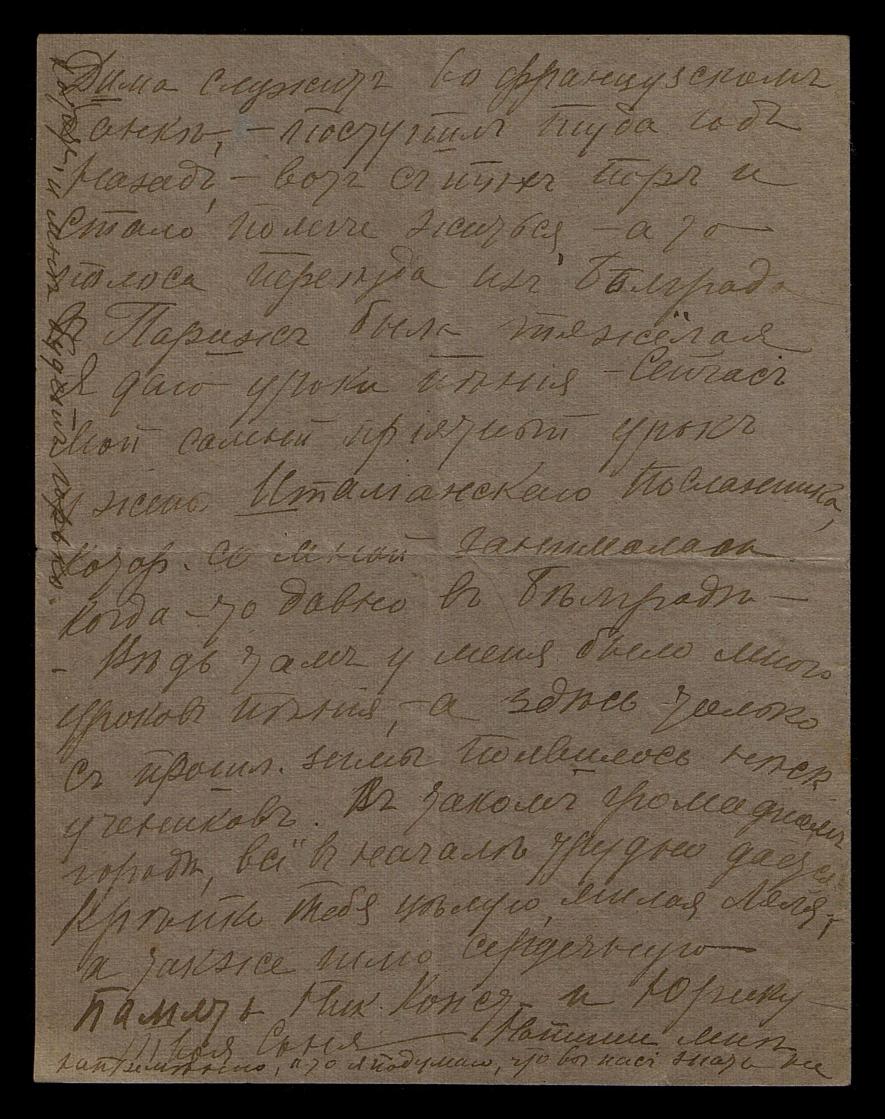 Дима служитъ во французскомъ
банкѣ, – поступилъ туда годъ
назадъ – вотъ съ тѣхъ поръ и
стало полегче житься – а то
полоса переѣзда изъ Бѣлграда
въ Парижъ была тяжёлая
Я даю уроки пѣнія – Сейчасъ
мой самый пріятный урокъ
у жены Испанскаго Посланника,
котор. со мной занималась
когда-то давно въ Бѣлградѣ –
– Вѣдь тамъ у меня было много
уроковъ пѣнія, – а здѣсь только
съ прошл. зимы появилось нѣск
учениковъ. Въ такомъ громадномъ
городѣ, всё въ началѣ трудно дается
Крѣпко тебя цѣлую, милая Ляля, –
а также шлю сердечную
память Ник. Конст. и Юрику –
Твоя Соня – Напиши мнѣ
непремѣнно, а то я подумаю, что вы насъ знать не
хотите и мнѣ будетъ горько.